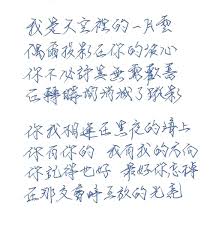 我是天空裡的一片雲
偶爾投影在你的波心
你不必訝異無需歡喜
在轉瞬間消滅了蹤影
你我相逢在黑夜的海上
你有你的 我有我的方向
你記得也好 最好你忘掉
在那交會時互放的光亮